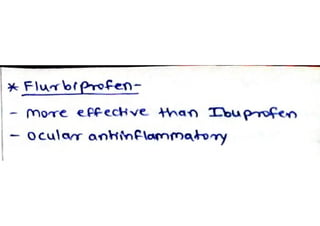 * Flurbiprofen-
- more effective than Ibuprofen
- ocular antiinflammatory